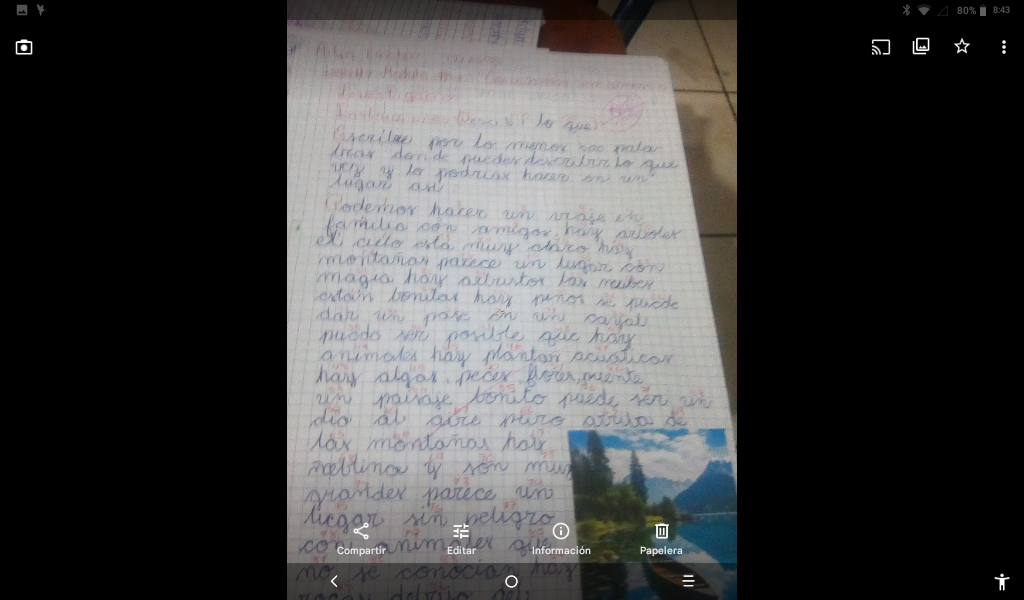 80% 8:43
Escribe por lo menos 100 pala
bras donde puedes describir lo que
vez y lo podrias hacer en un
lugar asi
Podemos hacer un viaje en
familia con amigos, hay arboles
el cielo está muy claro hay
montañas parece un lugar con
magia hay arbustos las nubes
están bonitas hay pinos se puede
dar un pase en un
puede ser posible que hay
animales hay plantas acuaticas
hay algas, peces, flores, puente
un paisaje bonito puede ser un
dia al aire puro arriba de
las montañas hay
neblina y son muy
grandes parece un
lugar sin peligro
con animales que
no se conocian hay
rocas debajo del
Compartir Editar Información Papelera